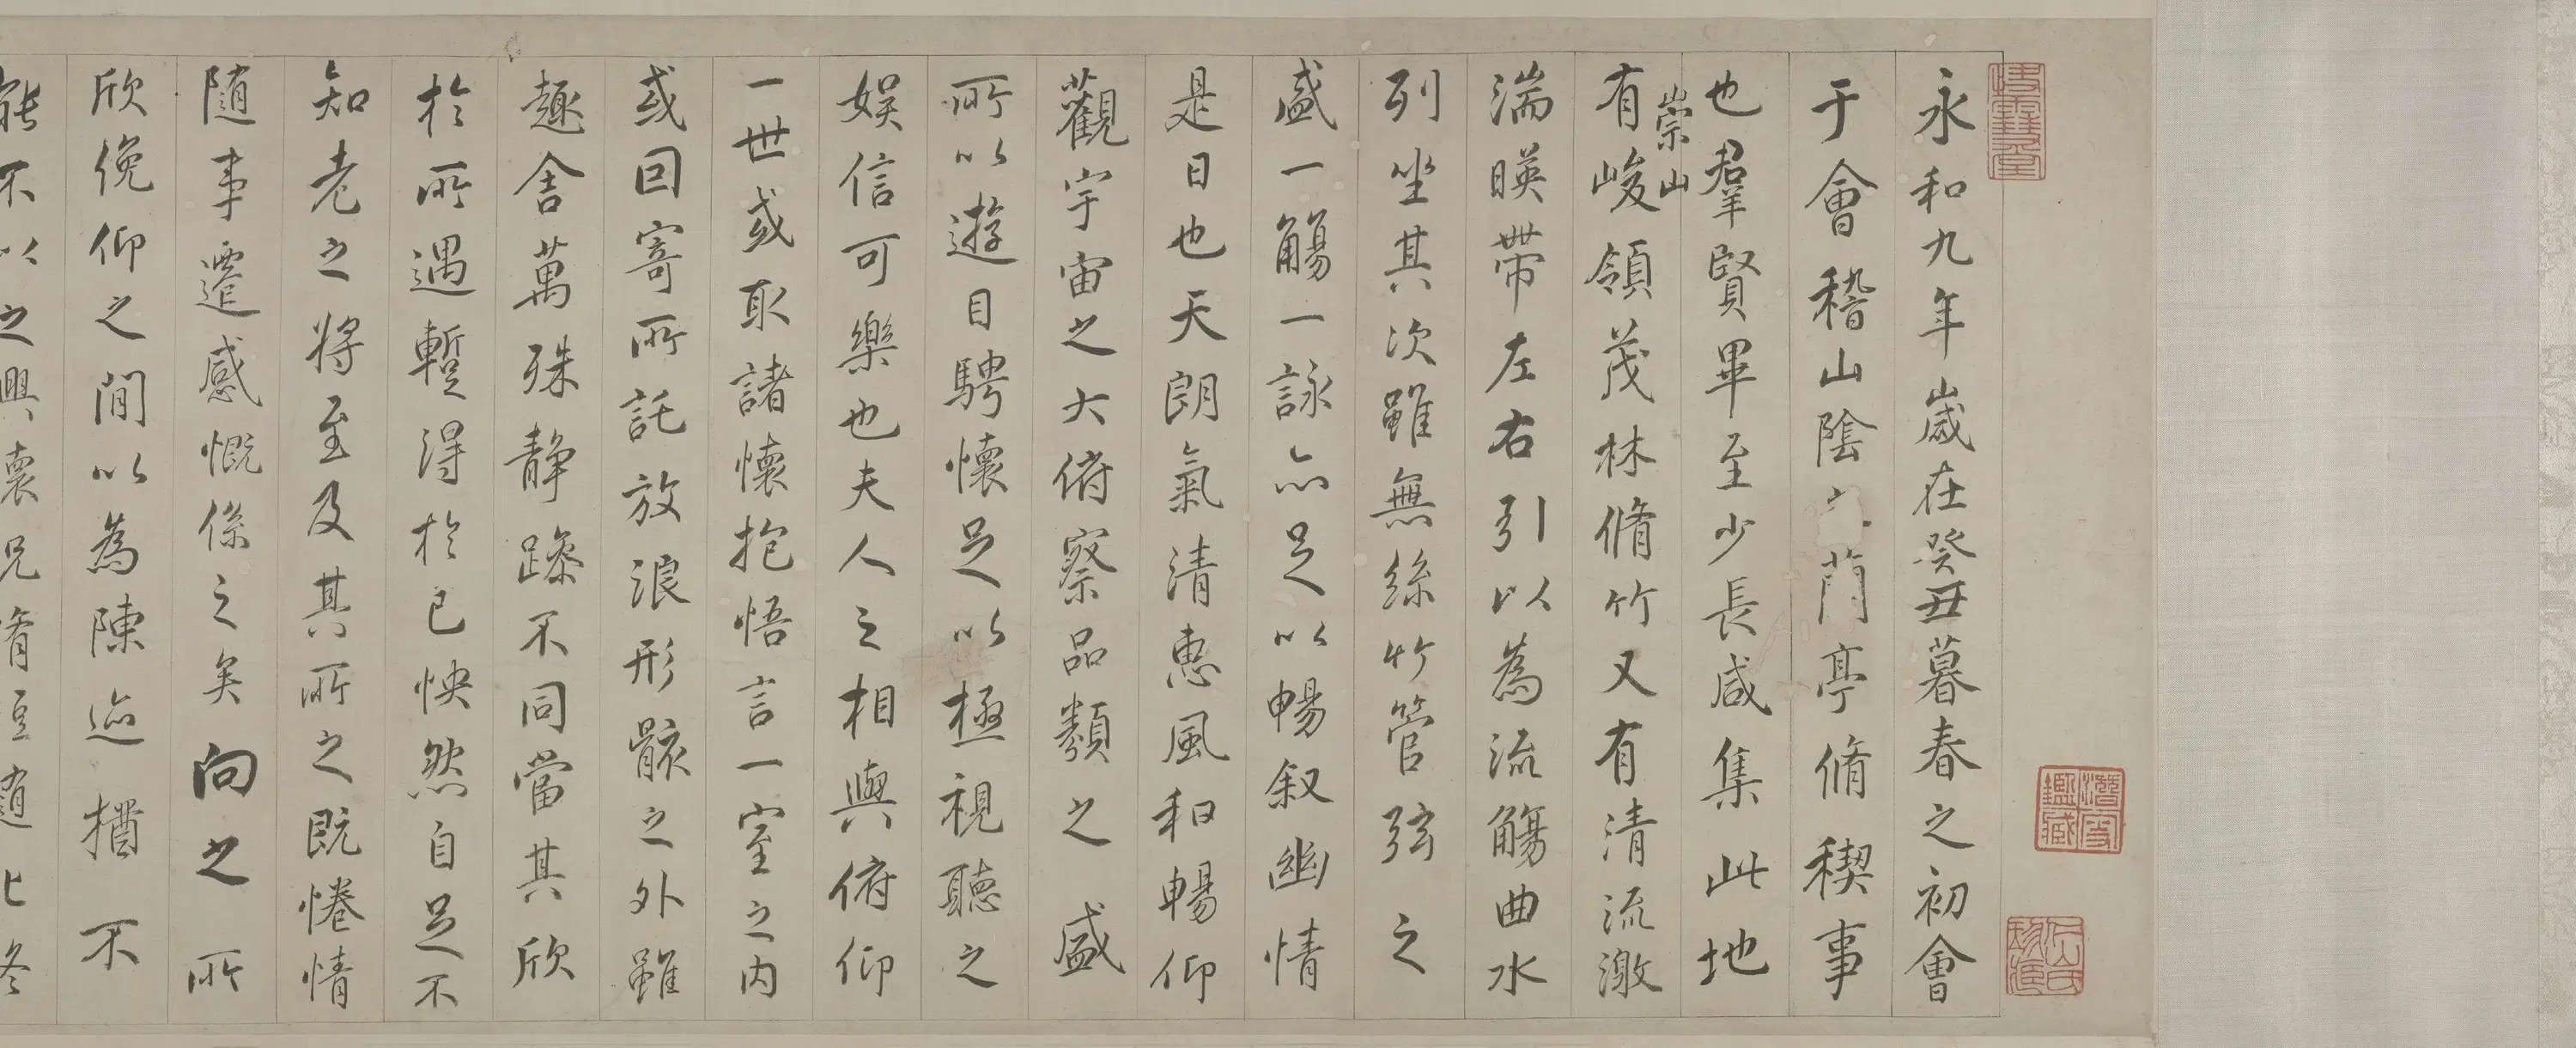 永和九年歲在癸丑暮春之初會
于會稽山陰之蘭亭脩稧事
也羣賢畢至少長咸集此地
崇山
有峻領茂林脩竹又有清流激
湍暎帶左右引以為流觴曲水
列坐其次雖無絲竹管弦之
盛一觴一詠亦足以暢叙幽情
是日也天朗氣清惠風和暢仰
觀宇宙之大俯察品類之盛
所以遊目騁懷足以極視聽之
娛信可樂也夫人之相與俯仰
一世或取諸懷抱悟言一室之內
或因寄所託放浪形骸之外雖
趣舍萬殊静躁不同當其欣
於所遇蹔得於己怏然自足不
知老之將至及其所之既惓情
隨事遷感慨係之矣向之所
欣俛仰之閒以為陳迹猶不
能不以之興懷況脩短隨化終
潛客鑑藏